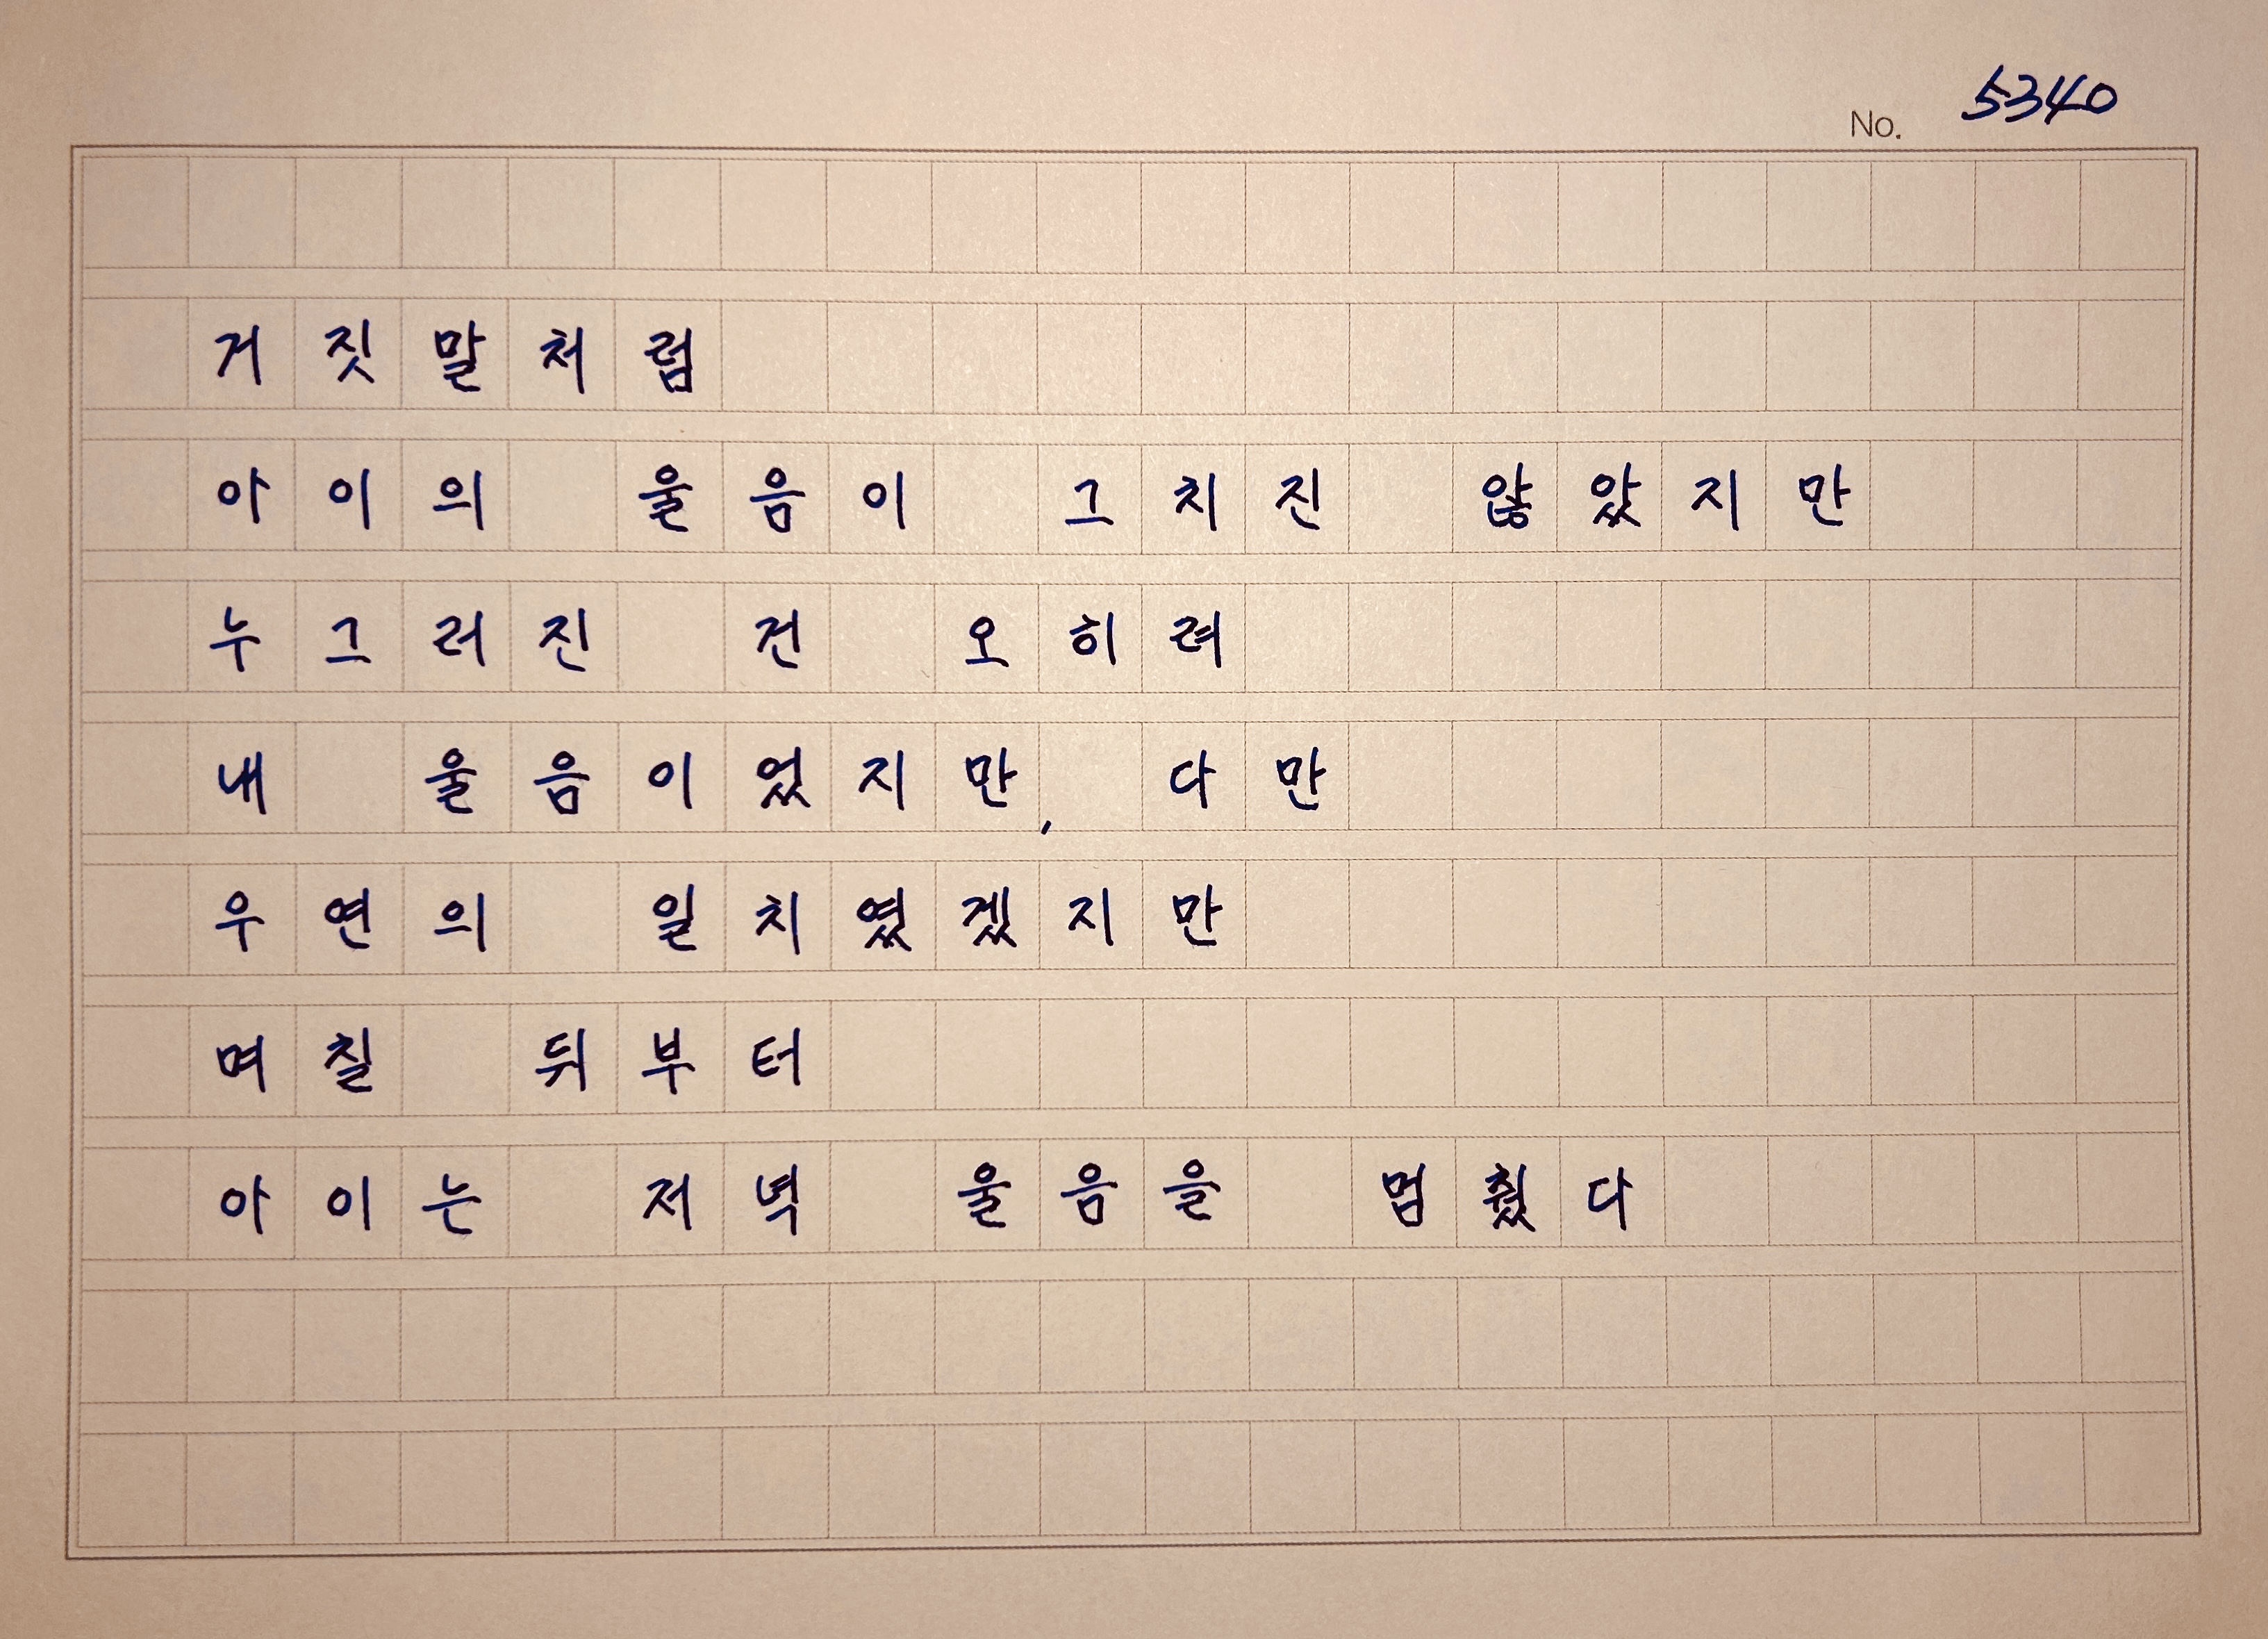 No. 5340
거짓말처럼
아이의 울음이 그치진 않았지만
누그러진 건 오히려
내 울음이었지만, 다만
우연의 일치였겠지만
며칠 뒤부터
아이는 저녁 울음을 멈췄다